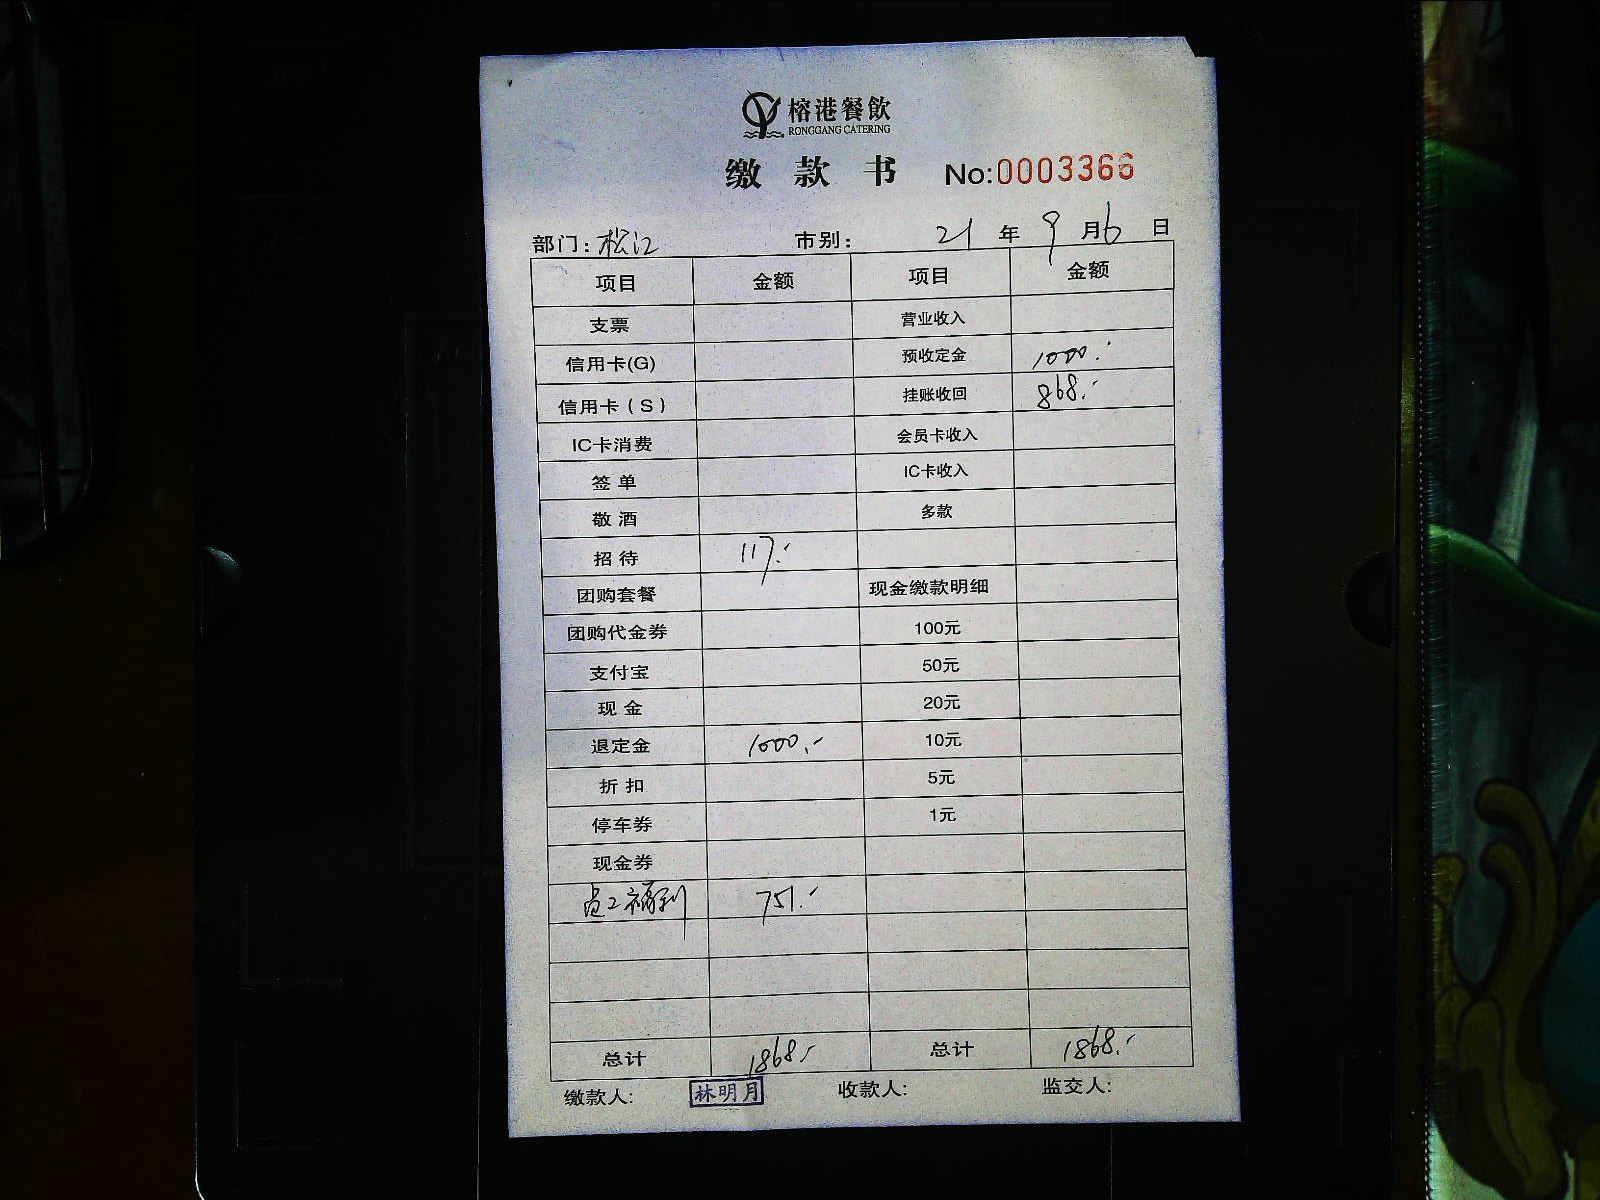 榕港餐飲
RONGGANG CATERING
缴 款 书 No:0003366
部门:松江 市别: 21 年 9 月 6 日
项目 金额 项目 金额
支票 营业收入
信用卡(G) 预收定金 1000.-
信用卡(S) 挂账收回 868.-
IC卡消费 会员卡收入
签单 IC卡收入
敬酒 多款
招待 117.-
团购套餐 现金缴款明细
团购代金券 100元
支付宝 50元
现金 20元
退定金 1000.- 10元
折扣 5元
停车券 1元
现金券
员工福利 751.-
总计 1868.- 总计 1868.-
缴款人: 林明月 收款人: 监交人: